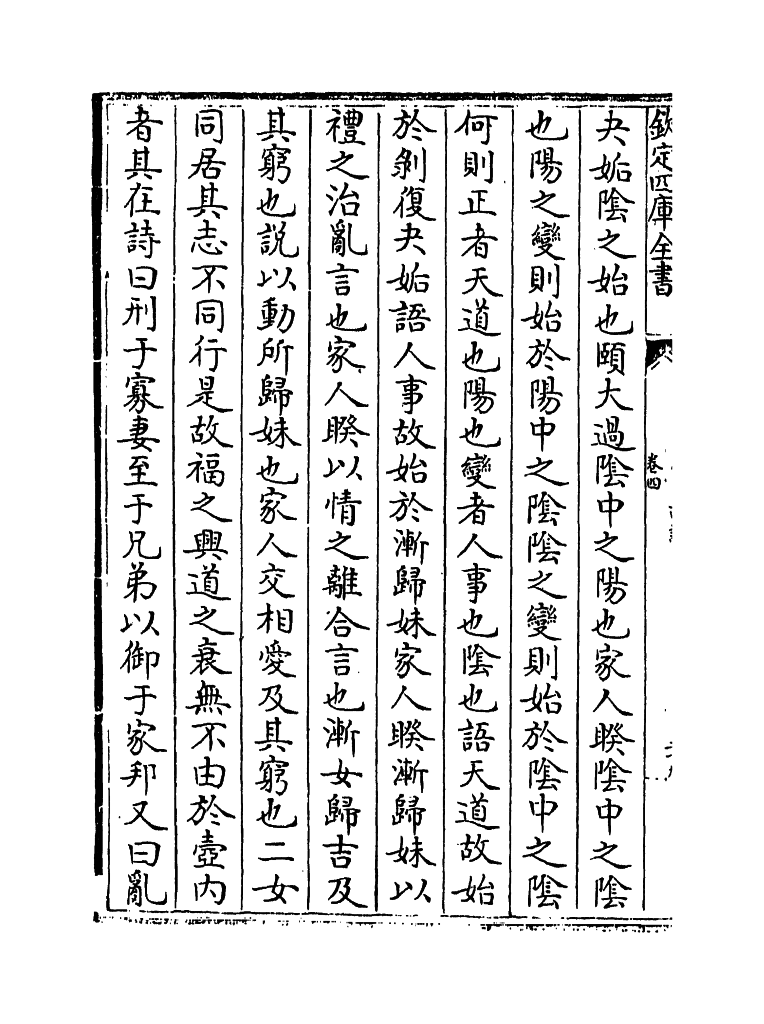 欽定四庫全書
卷四
夬姤陰之始也頤大過陰中之陽也家人睽陰中之陰
也陽之變則始於陽中之陰陰之變則始於陰中之陰
何則正者天道也陽也變者人事也陰也語天道故始
於剝復夬姤語人事故始於漸歸妹家人睽漸歸妹以
禮之治亂言也家人睽以情之離合言也漸女歸吉及
其窮也説以動所歸妹也家人交相愛及其窮也二女
同居其志不同行是故福之興道之衰無不由於壼内
者其在詩曰刑于寡妻至于兄弟以御于家邦又曰亂